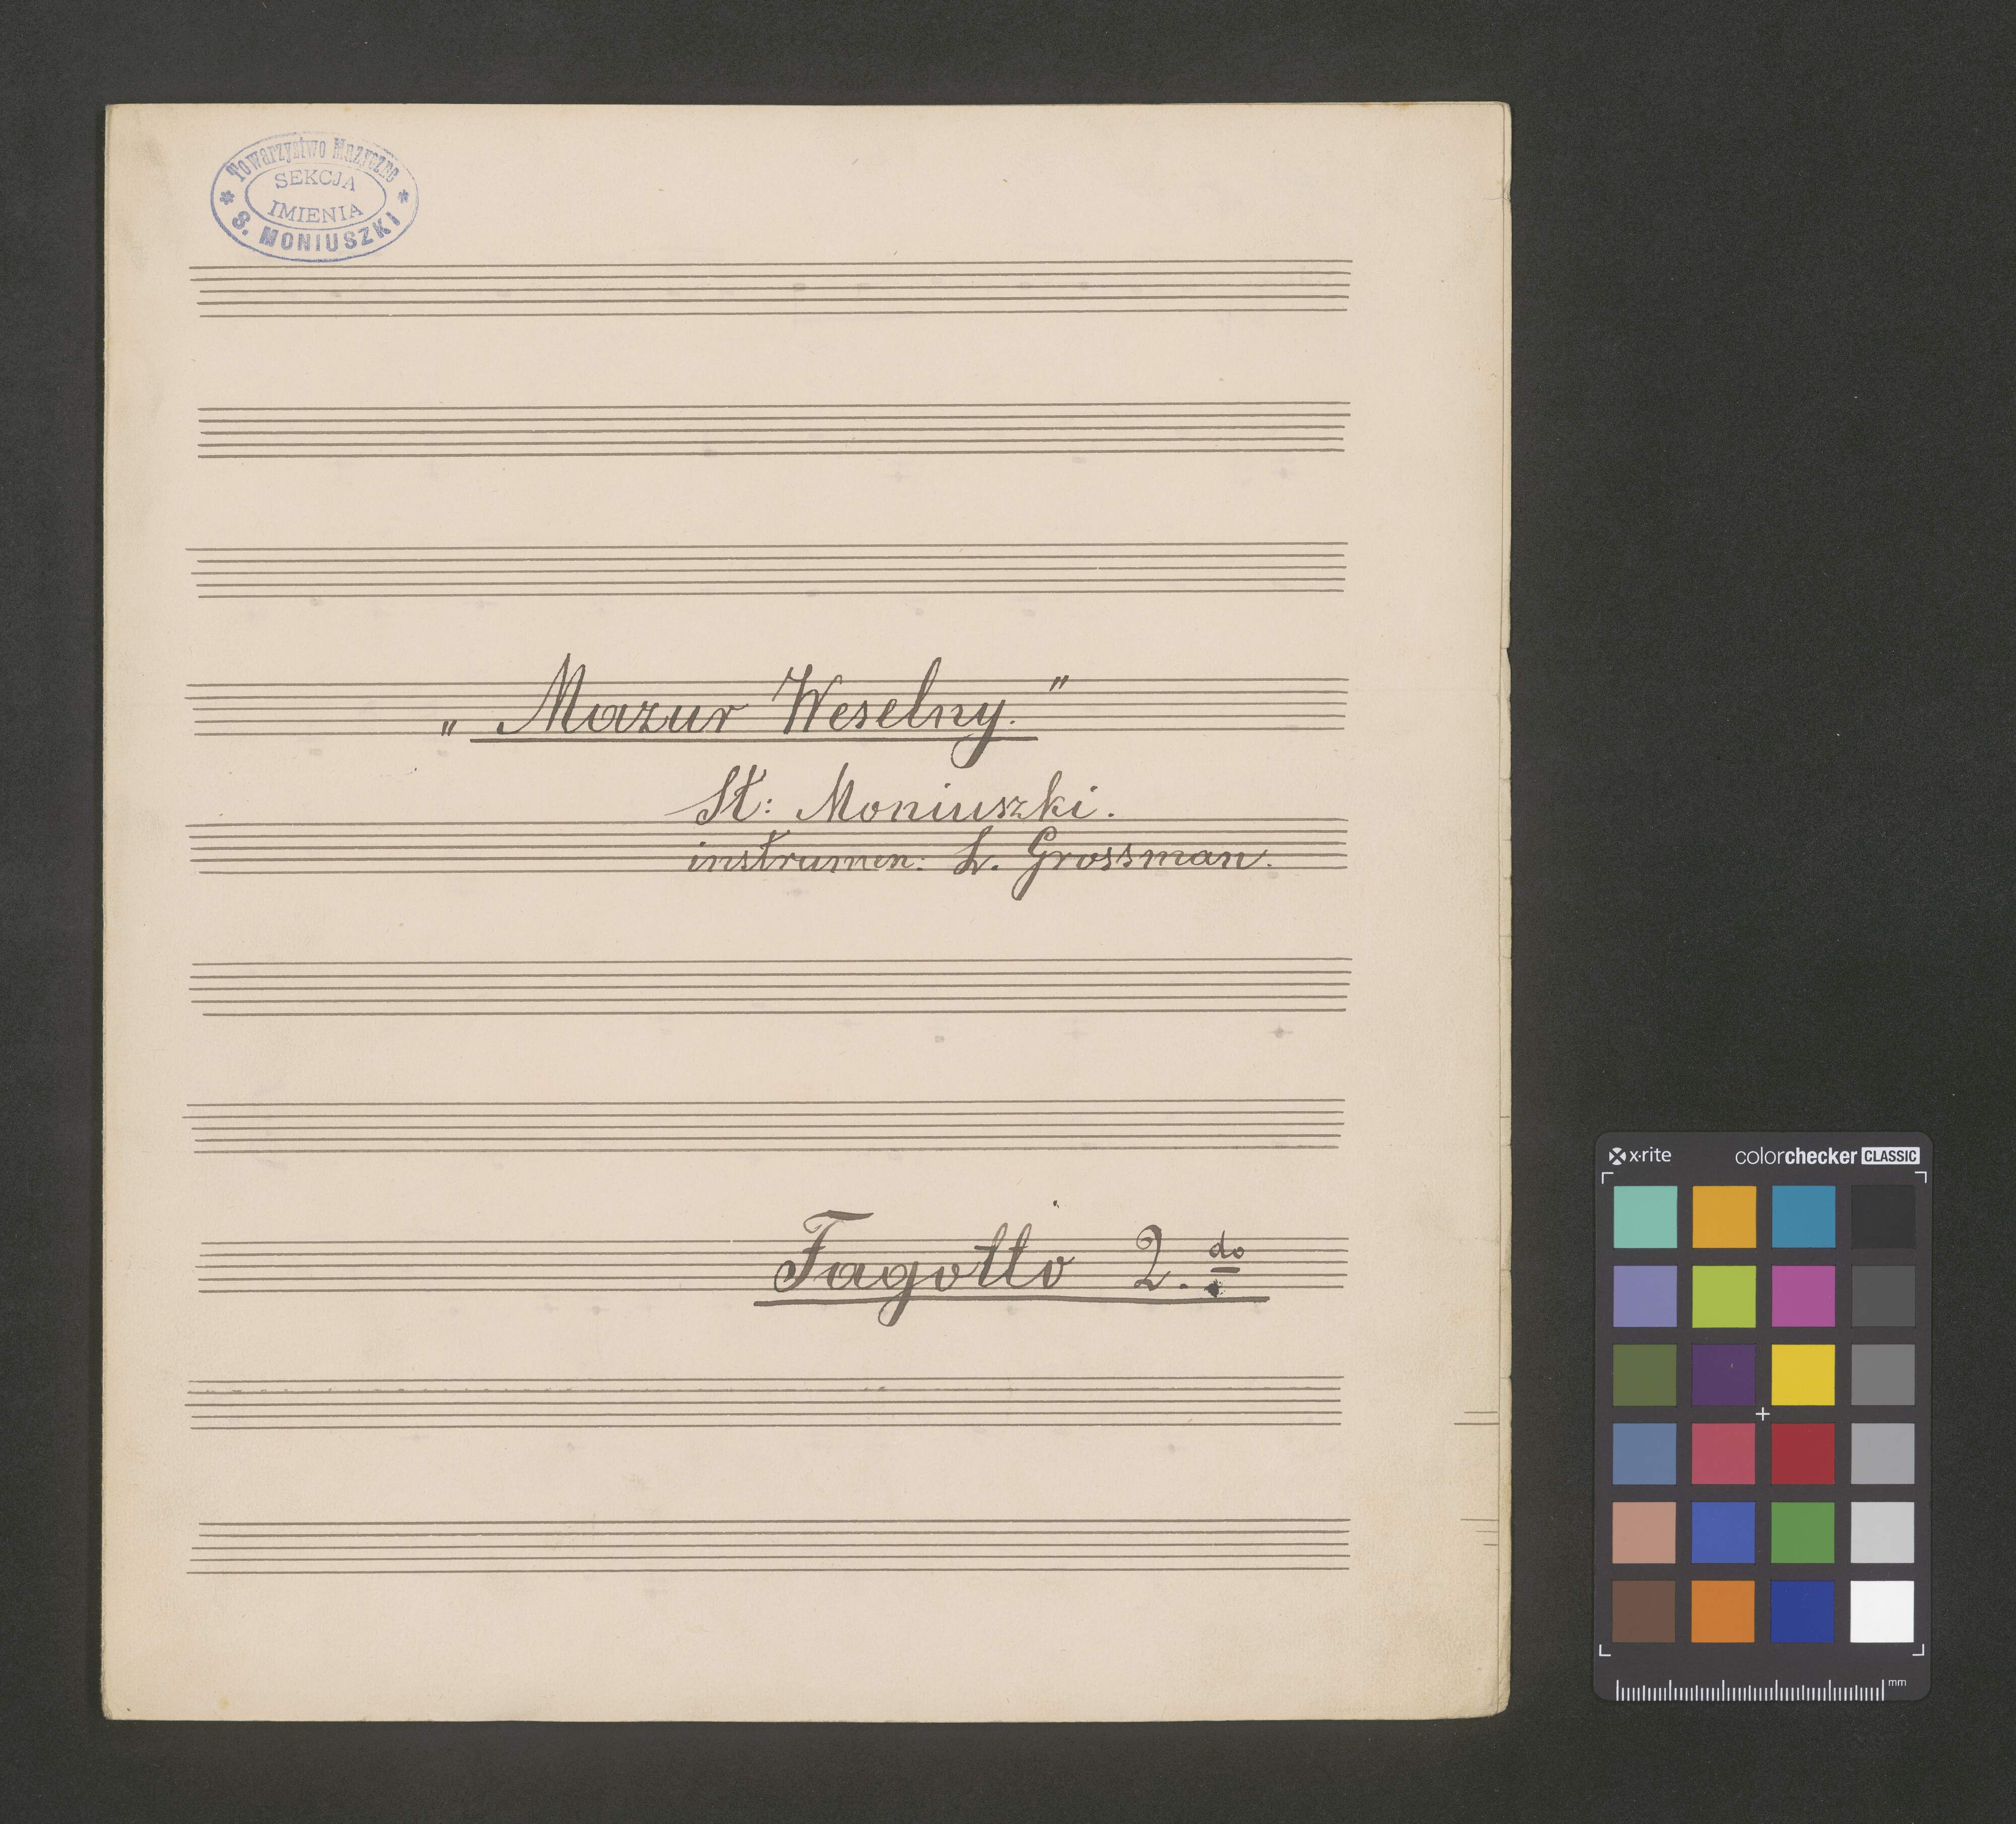 Towarzystwo Muzyczne
SEKCJA
IMIENIA
S. MONIUSZKI
„Mazur Weselny."
St: Moniuszki.
instrumen: L. Grossman.
Fagotto 2. do
x-rite colorchecker CLASSIC
mm